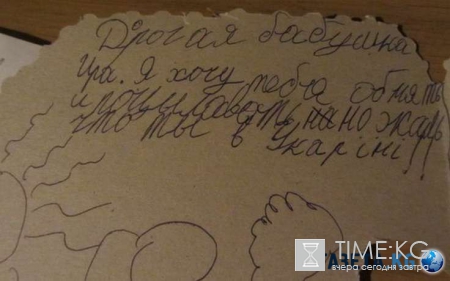 Дрогая бабушка
Ира. Я хочу тебя обнять
и но жаль
что ты в Укаріні!!
TIME.KG
вчера сегодня завтра